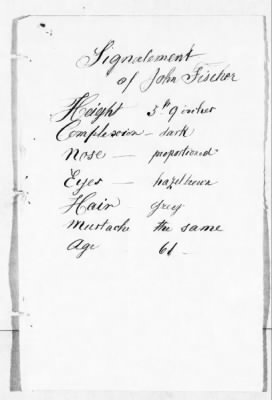 Signalement
of John Fischer
Height 5ft 9 inches
Complexion – dark
Nose — proportioned
Eyes — hazelbrown
Hair — grey
Mustache the same
Age 61 –